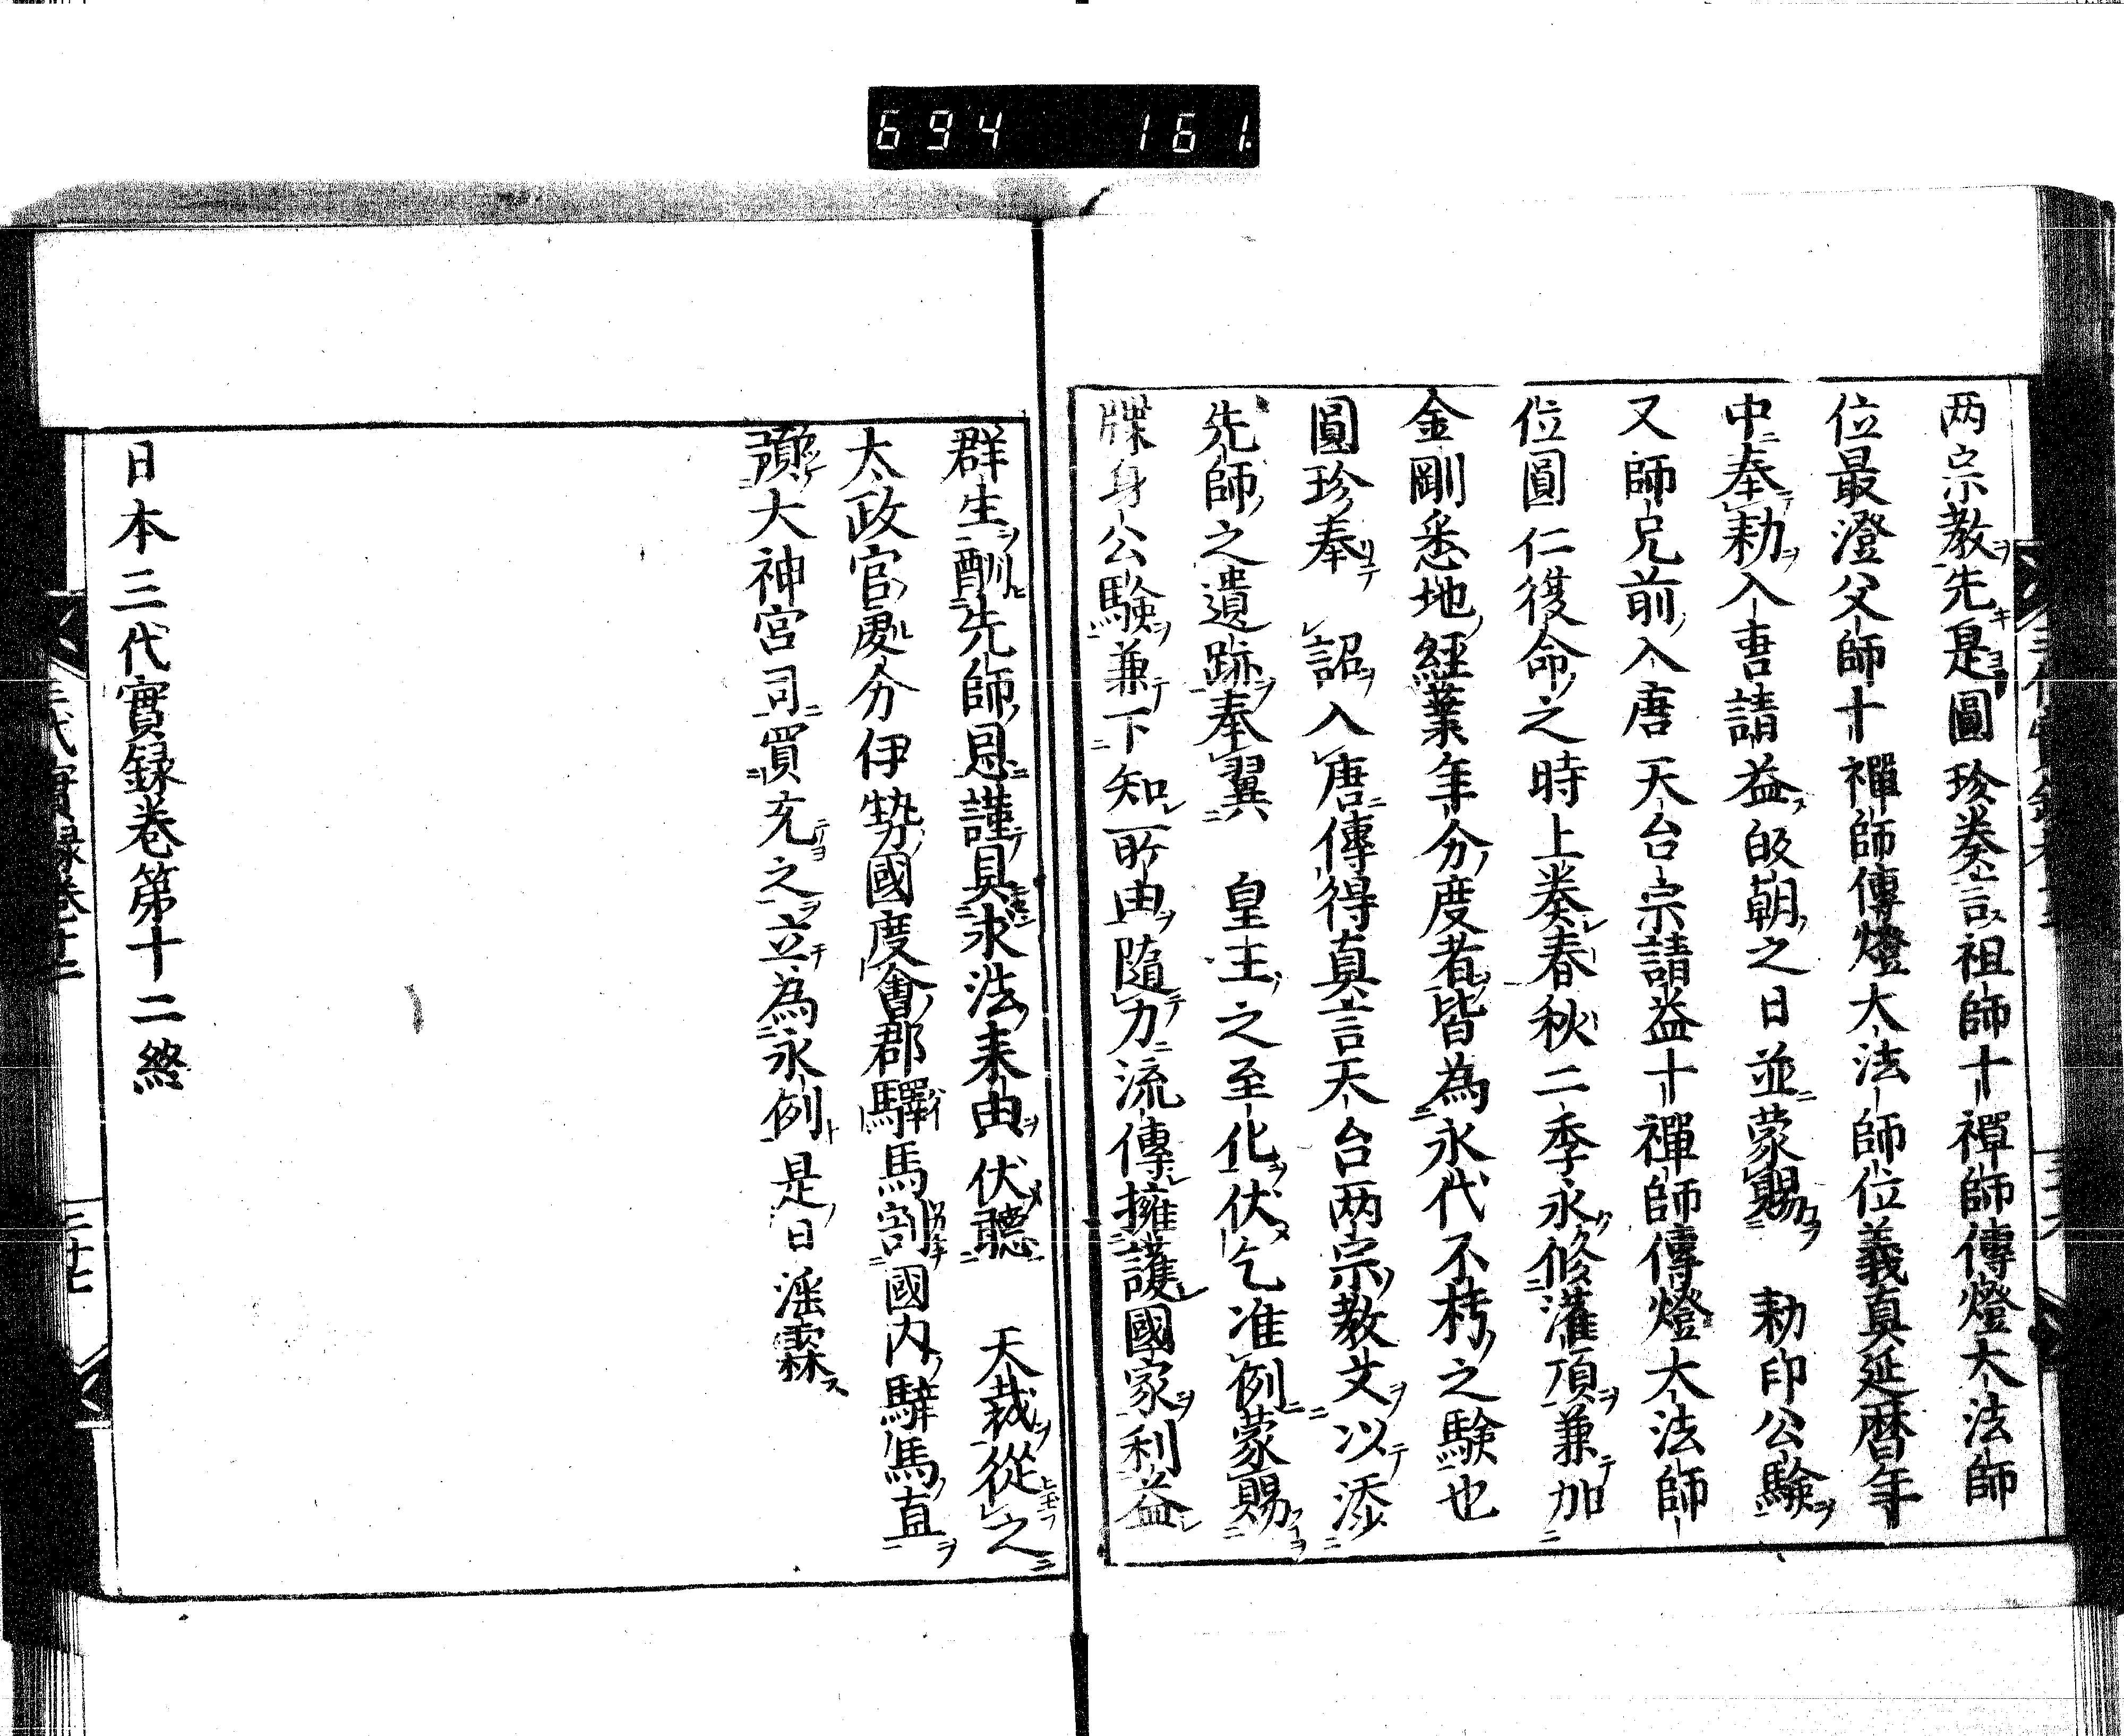 694 161.
两宗教先是圓珍奏言祖師十禪師傳燈大法師
位最澄父師十禪師傳燈大法師位義真延暦年
中奉勑入唐請益皈朝之日並蒙賜　勑印公驗
又師兄前入唐天台宗請益十禪師傳燈大法師
位圓仁復命之時上奏春秋二季永修灌頂兼加
金剛悉地經業年分度者皆為永代不朽之驗也
圓珍奉　詔入唐傳得真言天台两宗教文以添
先師之遺跡奉翼　皇王之至化伏乞准例蒙賜
牒身公驗兼下知所由隨力流傳擁護國家利益
群生酬先師恩謹具求法来由伏聽　天裁從之
太政官處分伊勢國度會郡驛馬割國内騨馬直
預大神宮司買充之立為永例是日滛霖
日本三代實録巻第十二終
三代實録巻十二
二十七